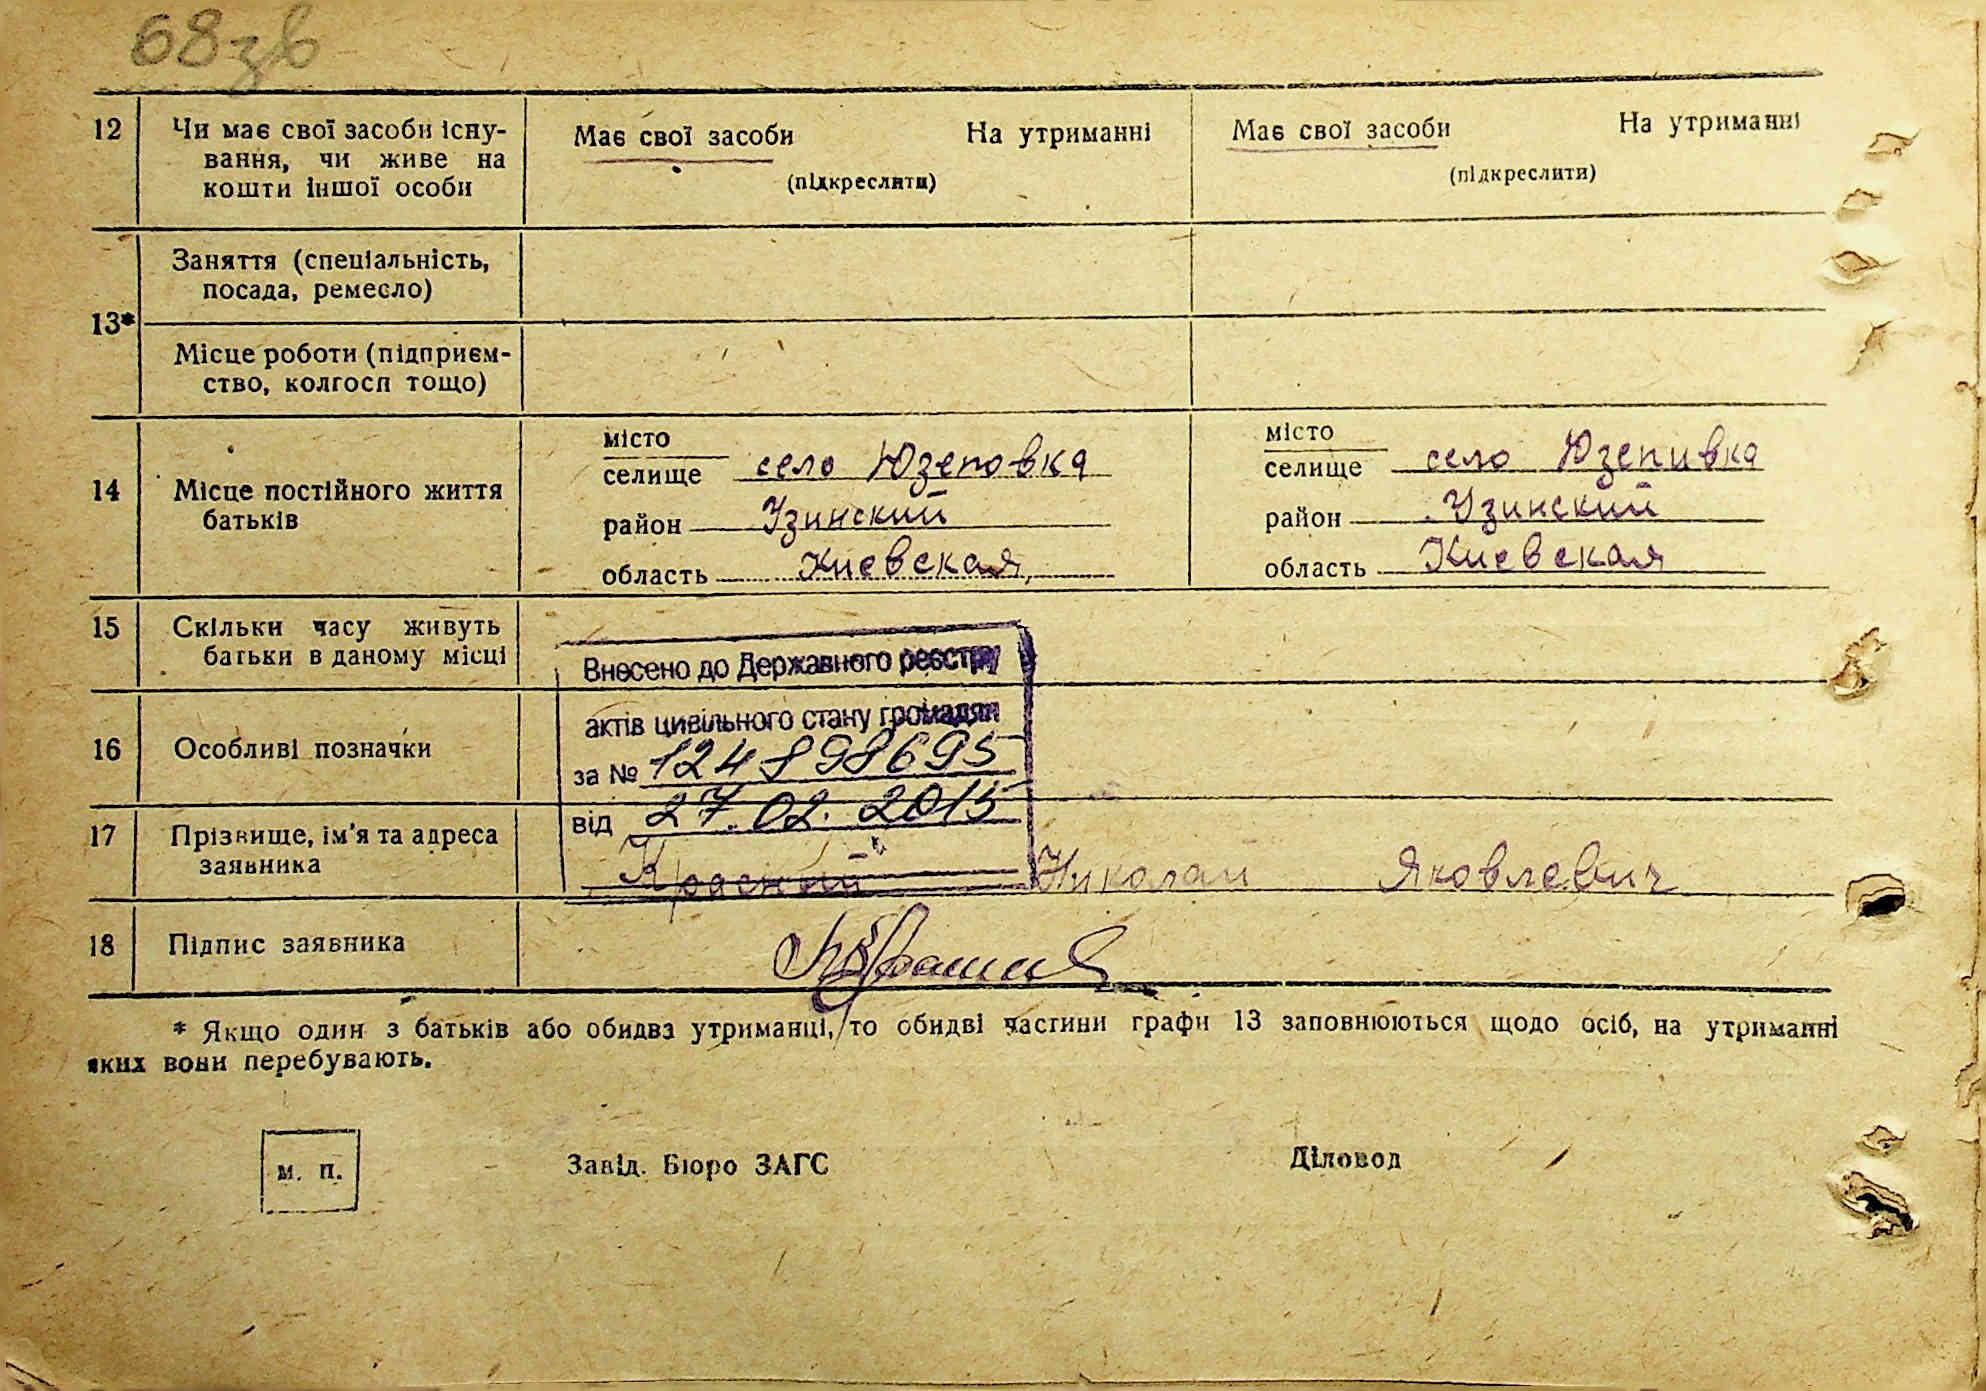 68зв
12 Чи має свої засоби існу-
вання, чи живе на
кошти іншої особи
Має свої засоби На утриманні
(підкреслити)
Має свої засоби На утриманні
(підкреслити)
13*
Заняття (спеціальність,
посада, ремесло)
Місце роботи (підприєм-
ство, колгосп тощо)
14 Місце постійного життя
батьків
місто
селище село Юзеповка
район Узинский
область Киевская
місто
селище село Юзепивка
район Узинский
область Киевская
15 Скільки часу живуть
батьки в даному місці
16 Особливі позначки
Внесено до Державного реєстру
актів цивільного стану громадян
за № 124898695
від 27.02.2015
17 Прізвище, ім'я та адреса
заявника
Красный Николай Яковлевич
18 Підпис заявника
* Якщо один з батьків або обидва утриманці, то обидві частини графи 13 заповнюються щодо осіб, на утриманні
яких вони перебувають.
м. п.
Завід. Бюро ЗАГС
Діловод